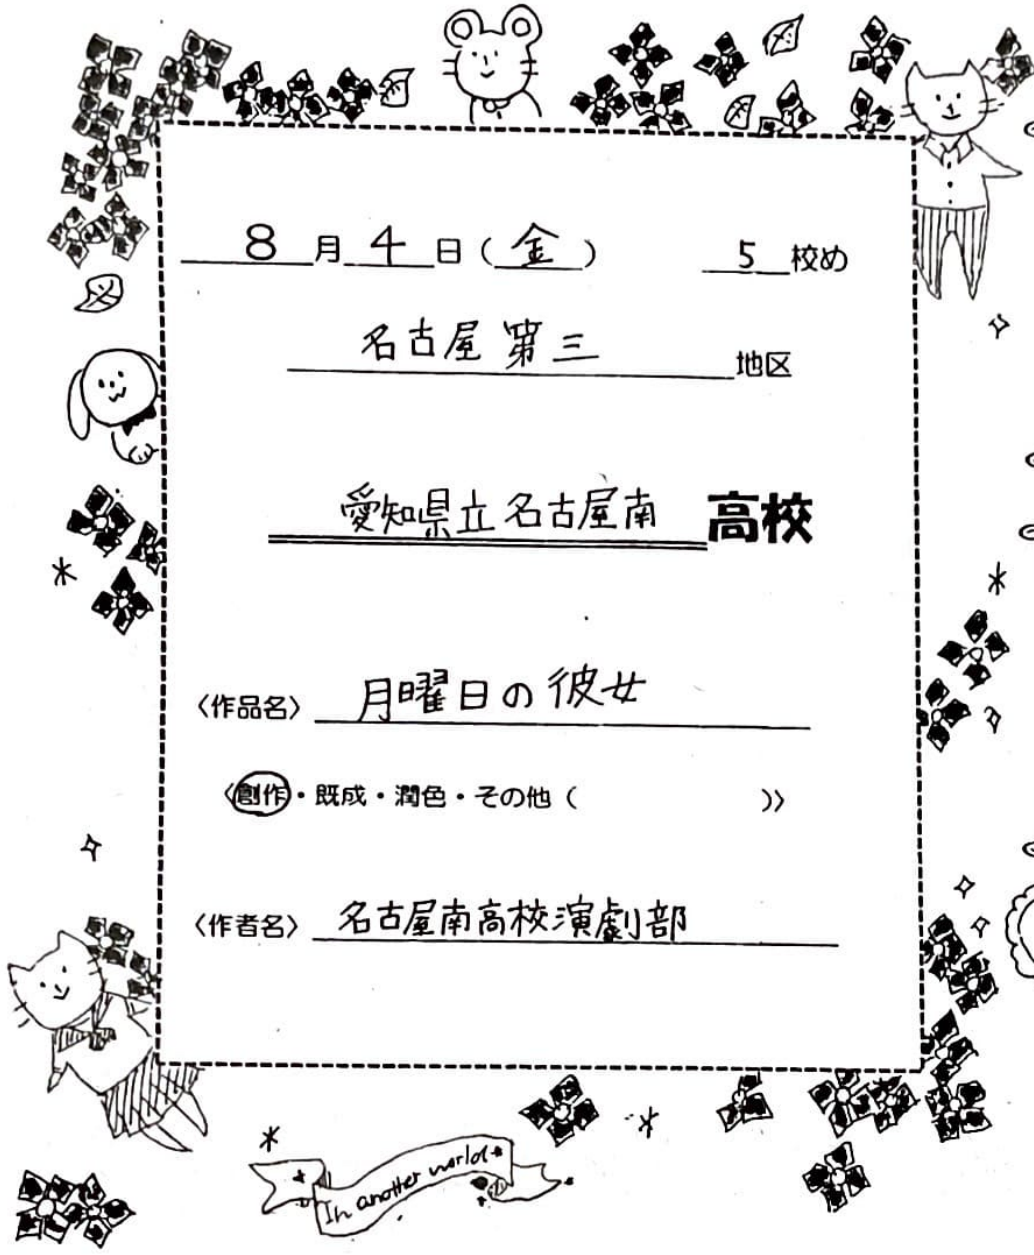 8月4日(金) 5校め
名古屋第三地区
愛知県立名古屋南高校
〈作品名〉月曜日の彼女
〈創作・既成・潤色・その他( )〉
〈作者名〉名古屋南高校演劇部
In another world